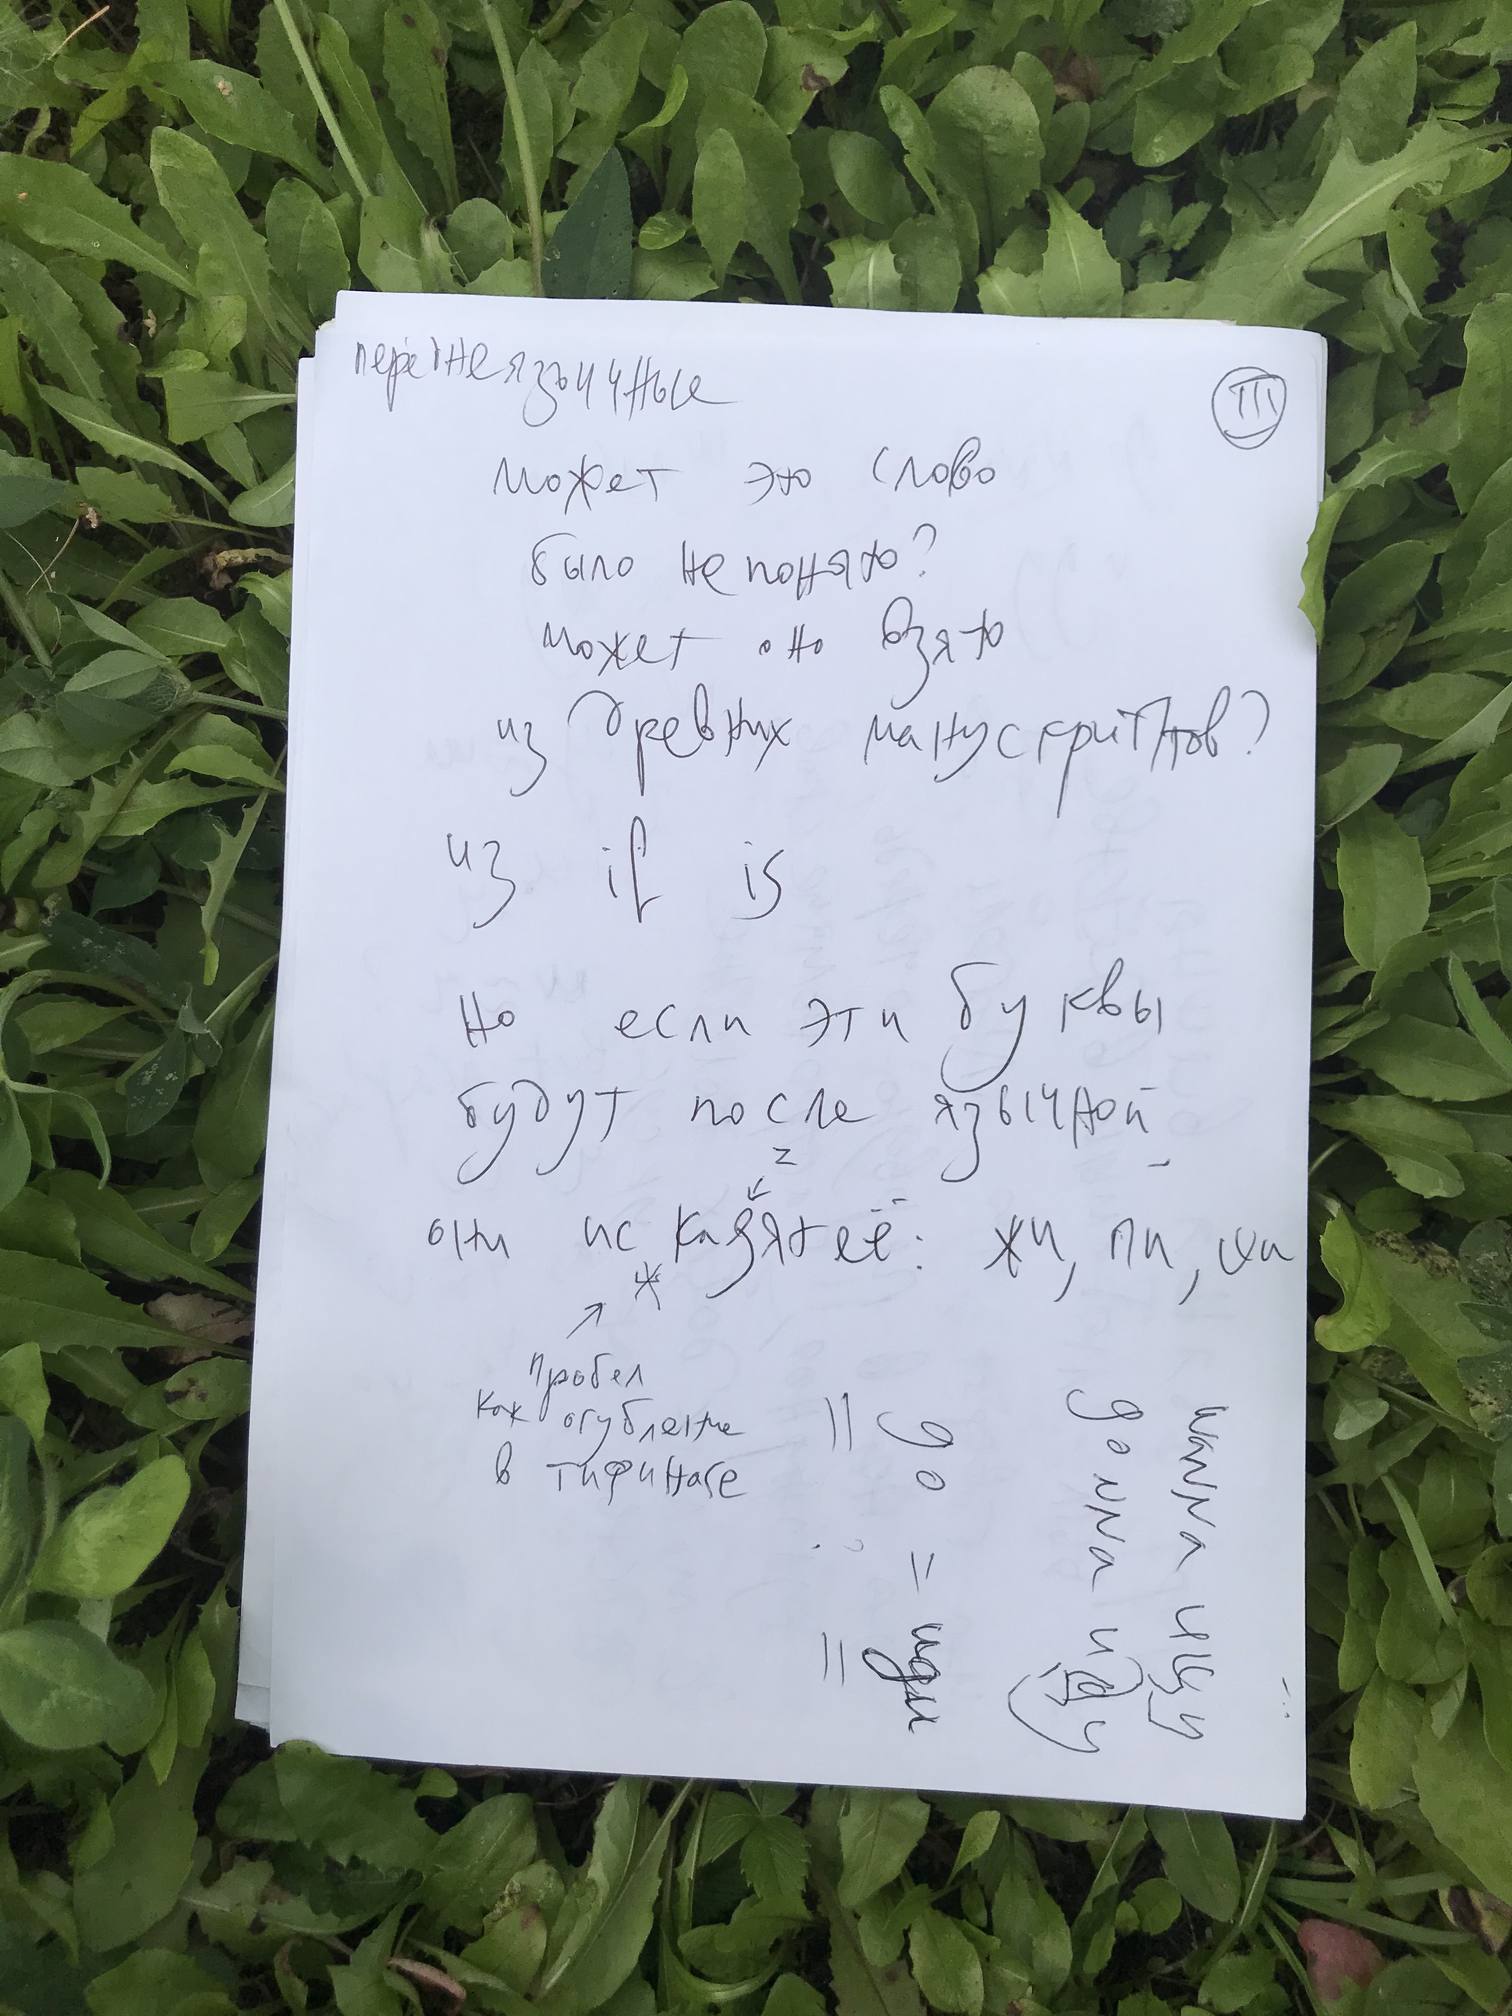 переднеязычные
III
может это слово
было не понято?
может оно взято
из древних манускриптов?
из if is
но если эти буквы
будут после язычной
z
они исказят её: жи, ли, ши
ж
пробел
как огубление
в тифинаге
wanna ищу
gonna иду
go = иди
= =